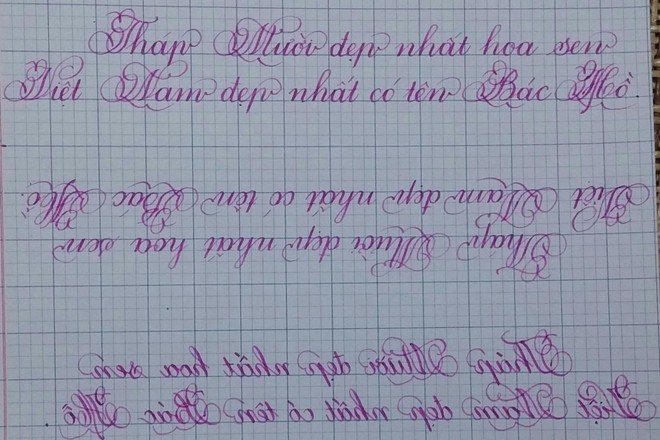 Tháp Mười đẹp nhất hoa sen
Việt Nam đẹp nhất có tên Bác Hồ.
Việt Nam đẹp nhất có tên Bác Hồ.
Tháp Mười đẹp nhất hoa sen
Tháp Mười đẹp nhất hoa sen
Việt Nam đẹp nhất có tên Bác Hồ.